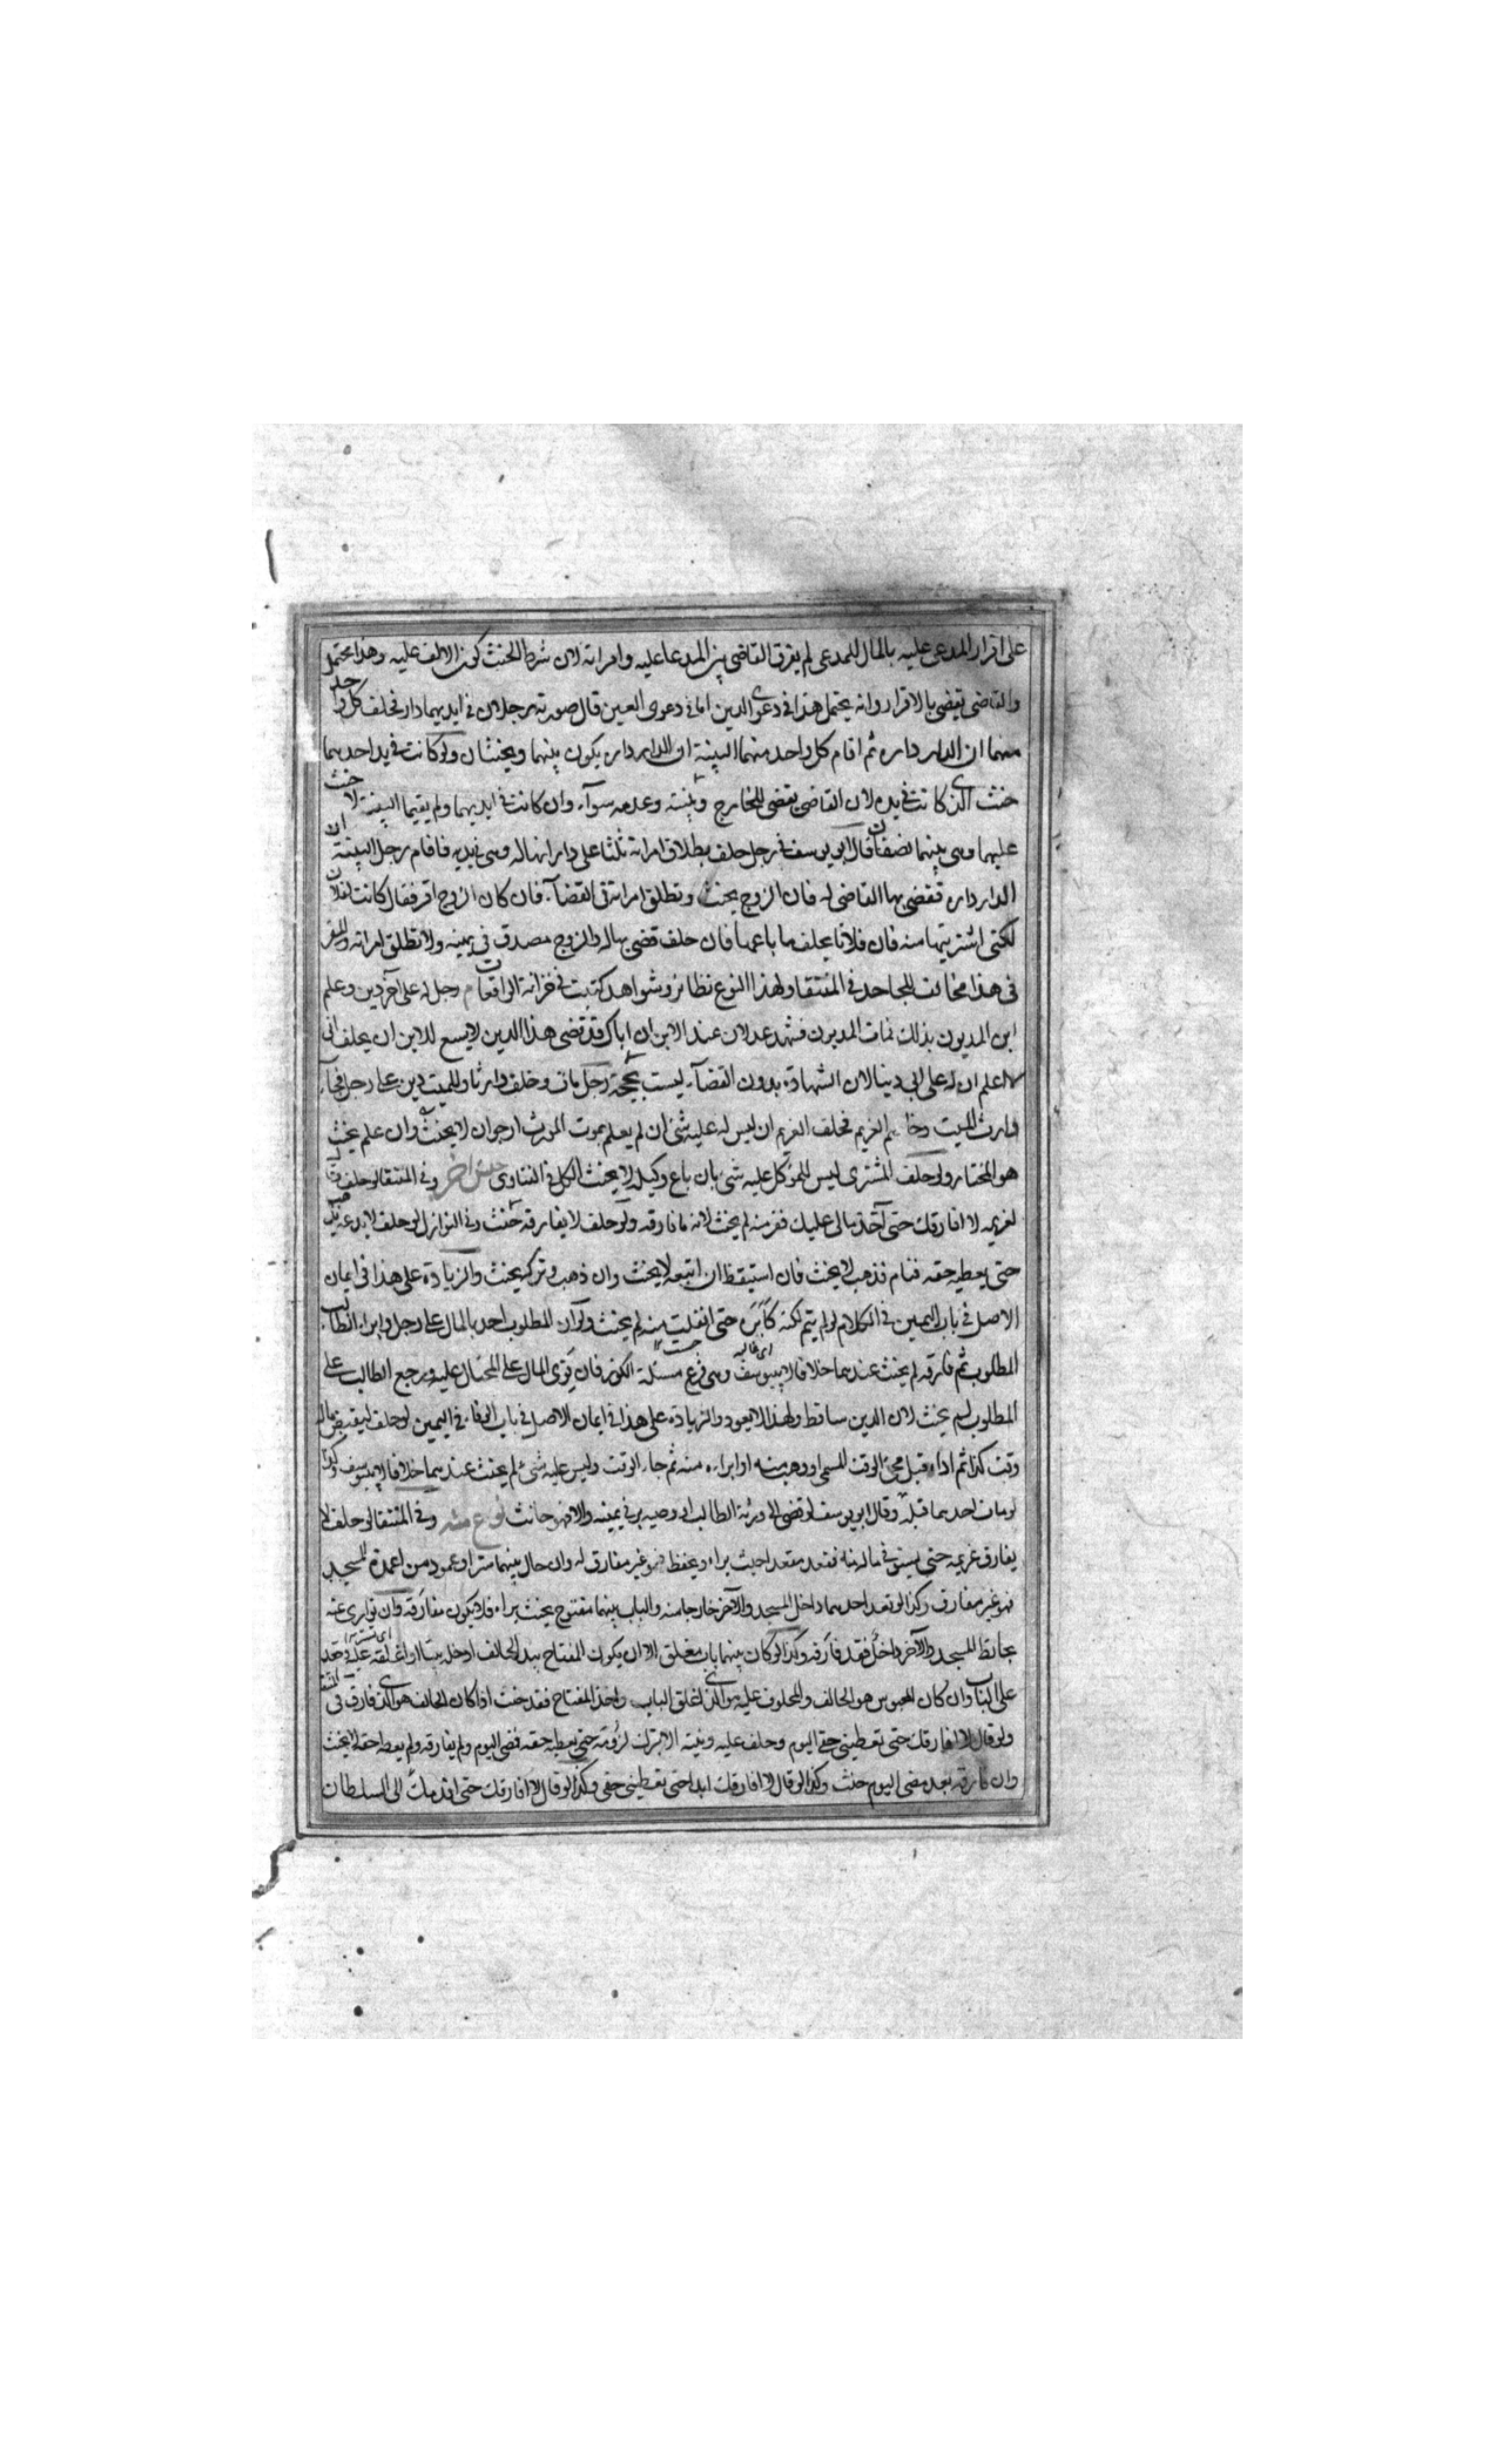 على اقرار المدعى عليه بالمال للمدعى لم يفرق القاضى بين المدعا عليه وامراته لان شرط الحنث كون الالف عليه وهذا يحتمل
والقاضى يقضى بالاقرار وانه يحتمل هذا فى دعوى الدين اما فى دعوى العين قال صورته رجلان فى ايديهما دار فحلف كل واحد
منهما ان الدار داره ثم اقام كل واحد منهما البينة ان الدار داره يكون بينهما ويحنثان ولو كانت فى يد احدهما
حنث الذى كانت فى يده لان القاضى يقضى للخارج وبينته وعدمه سوآء وان كانت فى ايديهما ولم يقيما البينة لا حنث
عليهما وهى بينهما نصفان قال ابو يوسف فى رجل حلف بطلاق امراته ثلثا على دار انها له وهى فى يديه فاقام رجل البينة ان
الدار داره فقضى بها القاضى له فان الزوج يحنث وتطلق امراته فى القضآء فان كان الزوج اقر فقال كانت لفلان
لكنى اشتريتها منه فان فلانا يحلف ما باعها فان حلف قضى بها له والزوج مصدق فى يمينه ولا تطلق امراته والمقر
فى هذا مخالف للجاحد فى المنتقا ولهذا النوع نظائر وشواهد كتبت فى خزانة الواقعات رجل له على آخر دين وعلم
ابن المديون بذلك فمات المديون فشهد عدلان عند الابن ان اباك قد قضى هذا الدين لا يسع للابن ان يحلف انى
لا اعلم ان له على ابى دينا لان الشهادة بدون القضآء ليست بحجة رجل مات وخلف وارثا وللميت دين على رجل فجآء
وارث الميت وخاصم الغريم فحلف الغريم ان ليس له عليه شئ ان لم يعلم بموت المورث ارجو ان لا يحنث وان علم يحنث
هو المختار ولو حلف المشترى ليس للموكل عليه شئ بان باع وكيله لا يحنث الكل فى الفتاوى جنس اخر وفى المنتقا لو حلف
لغريمه لا افارقك حتى آخذ مالى عليك ففر منه لم يحنث لانه ما فارقه ولو حلف لا يفارقه حنث وفى النوازل لو حلف لا يدعه يذهب
حتى يعطيه حقه فنام فذهب لا يحنث فان استيقظ ان اتبعه لا يحنث وان ذهب وتركه يحنث والزيادة على هذا فى ايمان
الاصل فى باب اليمين فى الكلام لو لم يتم لكنه كابره حتى انفلت منه لم يحنث ولو ان المطلوب احد بالمال على رجل وابراء الطالب
المطلوب ثم فارقه لم يحنث عندهما خلافا لابيوسف وهى فرع مسئلة الكوز فان توى المال على المحتال عليه ورجع الطالب على
المطلوب لم يحنث لان الدين ساقط ولهذا لا يعود والزيادة على هذا فى ايمان الاصل فى باب الوفاء فى اليمين لو حلف ليقبض ماله
وقت كذا ثم اداه قبل مجئ الوقت المسمى او وهب منه او ابراءه منه ثم جاء الوقت وليس عليه شئ لم يحنث عندهما خلافا لابيوسف وكذا
لو مات احدهما قبله وقال ابو يوسف لو قضى الى ورثة الطالب او وصيه بر فى يمينه والا فهو حانث نوع منه وفى المنتقا لو حلف لا
يفارق غريمه حتى يستوفى ماله منه فقعد مقعدا حيث يراه ويحفظ فهو غير مفارق له وان حال بينهما ستر او عمود من اعمدة المسجد
فهو غير مفارق وكذا لو قعد احدهما داخل المسجد والآخر خارجا منه والباب بينهما مفتوح بحيث يراه فلا يكون مفارقه وان توارى عنه
بحائط المسجد والآخر داخل فقد فارقه وكذا لو كان بينهما باب مغلق الا ان يكون المفتاح بيد الحالف ادخله بيتا او اغلقه عليه وقعد
على الباب وان كان المحبوس هو الحالف والمحلوف عليه هو الذى اغلق الباب واخذ المفتاح فقد حنث اذا كان الحالف هو الذى فارق فى المنتقا
ولو قال لا افارقك حتى تعطينى حقى اليوم وحلف عليه ونيته الا يترك لزومه حتى يعطيه حقه فمضى اليوم ولم يفارقه ولم يعطه حقه لا يحنث
وان فارقه بعد مضى اليوم حنث وكذا لو قال لا افارقك ابدا حتى تعطينى حقى وكذا لو قال لا افارقك حتى اقدمك الى السلطان